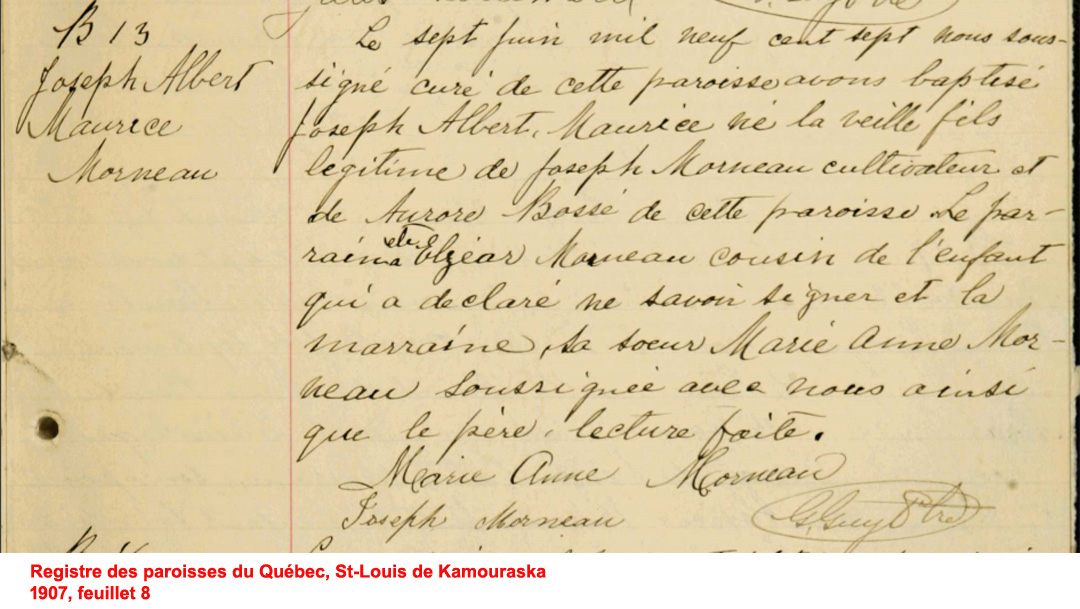 B 13
Joseph Albert
Maurice
Morneau
Le sept juin mil neuf cent sept nous sous-
signé curé de cette paroisse avons baptisé
Joseph Albert, Maurice né la veille fils
legitime de Joseph Morneau cultivateur et
de Aurore Bossé de cette paroisse. Le par-
rain a été Elzéar Morneau cousin de l'enfant
qui a declaré ne savoir signer et la
marraine, sa soeur Marie Anne Mor-
neau soussignée avec nous ainsi
que le père, lecture faite.
Marie Anne Morneau
Joseph Morneau
G. Guy Ptre
Registre des paroisses du Québec, St-Louis de Kamouraska
1907, feuillet 8